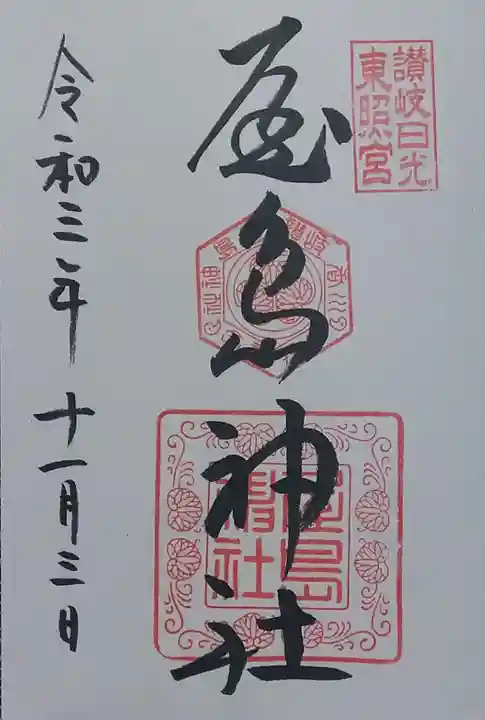 讃岐日光
東照宮
屋島神社
屋島
神社
令和三年十一月三日